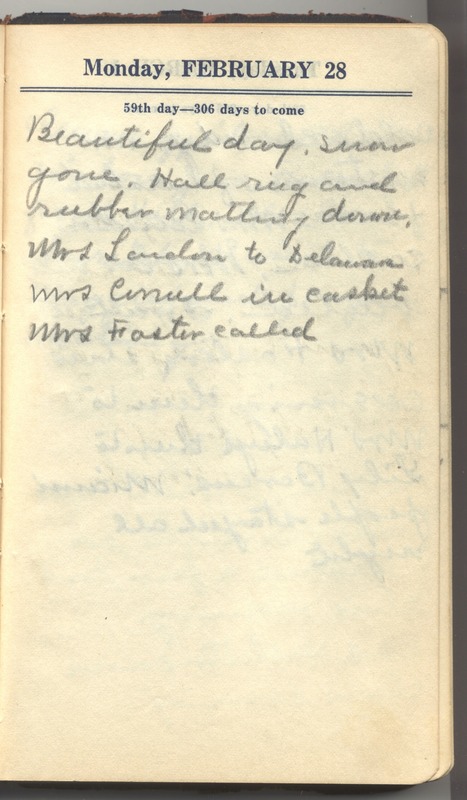 Monday, FEBRUARY 28
59th day—306 days to come
Beautiful day. snow
gone. Hall rug and
rubber matting down.
Mrs London to Delaware
Mrs in casket
Mrs Foster called